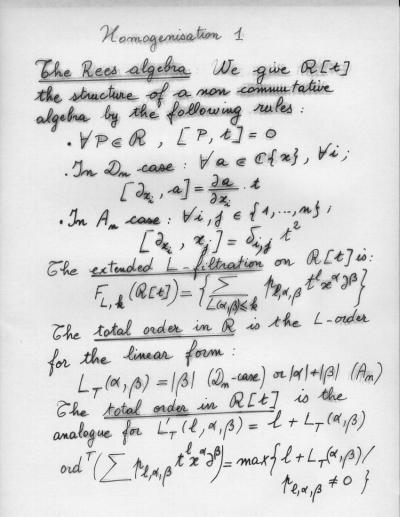 Homogenisation 1
The Rees algebra We give R[t]
the structure of a non commutative
algebra by the following rules :
• ∀P ∈ R , [P, t] = 0
• In Dn case : ∀a ∈ C{x}, ∀i ;
[∂xi, a] = ∂a/∂xi · t
• In An case : ∀i,j ∈ {1,...,n} ;
[∂xi, xj] = δi,j t²
The extended L-filtration on R[t] is:
F_{L,k}(R[t]) = { ∑_{L(α,β)≤k} p_{ℓ,α,β} t^ℓ x^α ∂^β }
The total order in R is the L-order
for the linear form :
L_T(α,β) = |β| (Dn-case) or |α|+|β| (An)
The total order in R[t] is the
analogue for L'_T(ℓ,α,β) = ℓ + L_T(α,β)
ord^T(∑ p_{ℓ,α,β} t^ℓ x^α ∂^β) = max{ℓ + L_T(α,β)/
p_{ℓ,α,β} ≠ 0 }